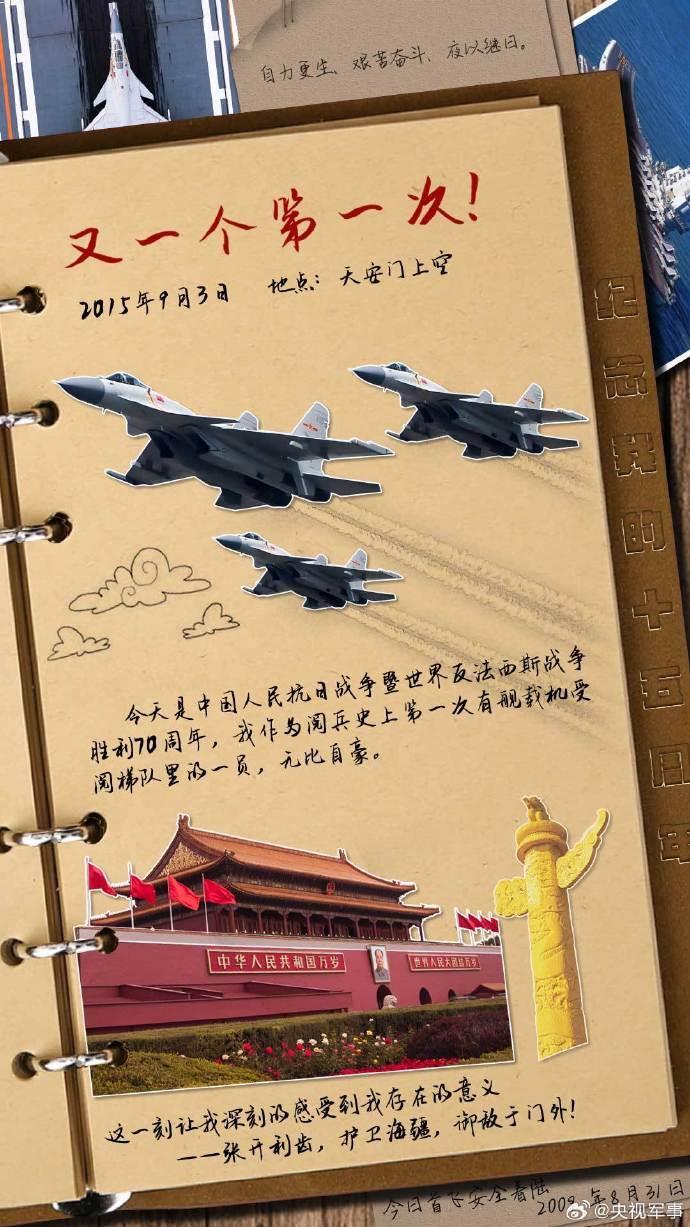 自力更生、艰苦奋斗、夜以继日。
又一个第一次!
2015年9月3日 地点:天安门上空
纪念我的十五周年
今天是中国人民抗日战争暨世界反法西斯战争
胜利70周年,我作为阅兵史上第一次有舰载机受
阅梯队里的一员,无比自豪。
中华人民共和国万岁
世界人民大团结万岁
这一刻让我深刻的感受到我存在的意义
——张开利齿,护卫海疆,御敌于门外!
今日首飞安全着陆
2009年8月31日
@央视军事